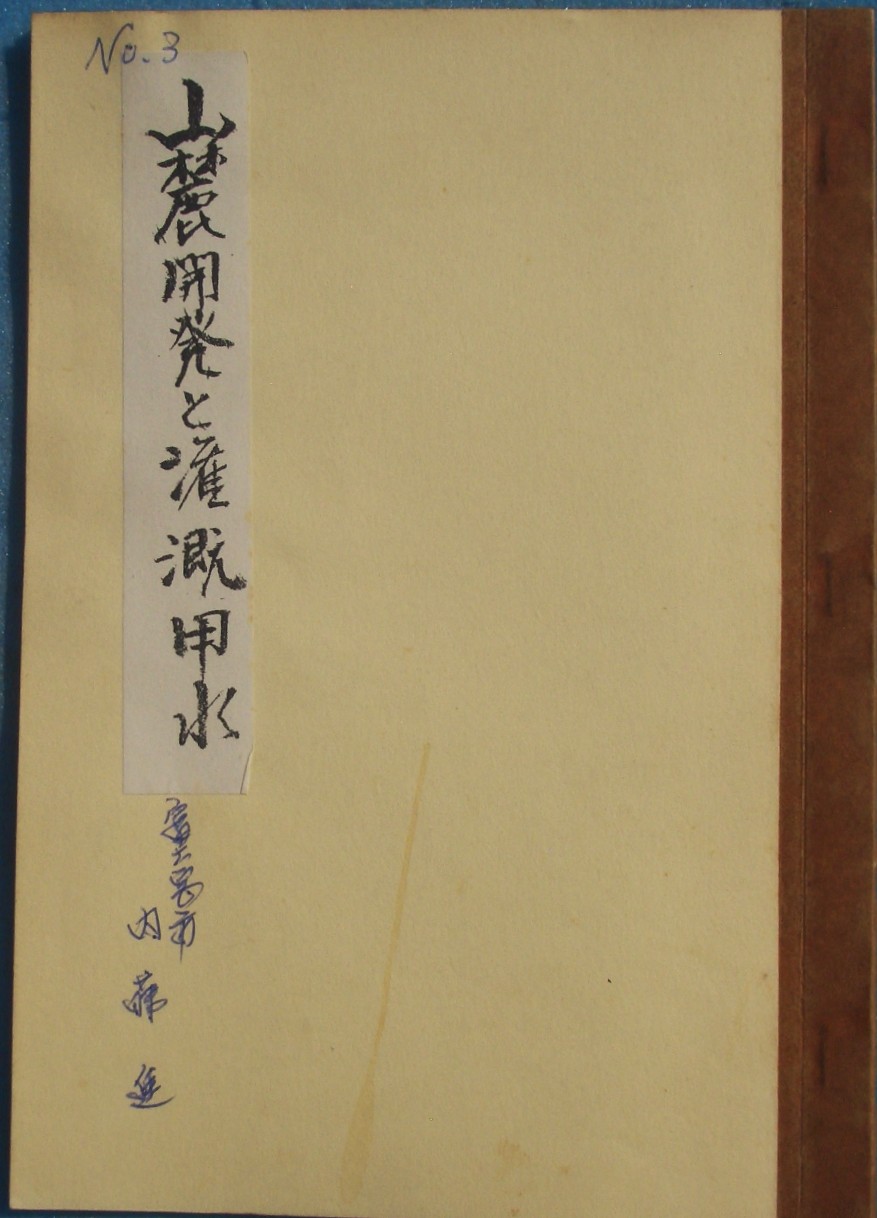 No.3
山麓開発と灌漑用水
富士宮市
内藤 進